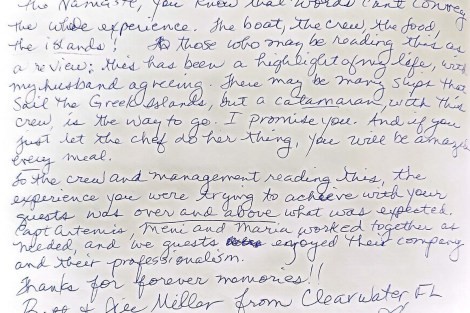 the Namaste, you know that words can't convey
the whole experience. The boat, the crew, the food,
the islands! To those who may be reading this as
a review: this has been a highlight of my life, with
my husband agreeing. There may be many ships that
sail the Greek Islands, but a catamaran, with this
crew, is the way to go. I promise you. And if you
just let the chef do her thing, you will be amazed
every meal.
To the crew and management reading this, the
experience you were trying to achieve with your
guests was over and above what was expected.
Capt Artemis, Meni and Maria worked together as
needed, and we guests enjoyed their company
and their professionalism.
Thanks for forever memories!!
& Miller from Clearwater, FL